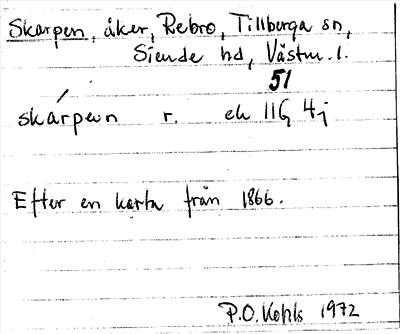 Skarpen, åker, Rebro, Tillberga sn,
Siende hd, Västm. l.
51
skárpen r. ek 11G 4j
Efter en karta från 1866.
P.O. Kohls 1972